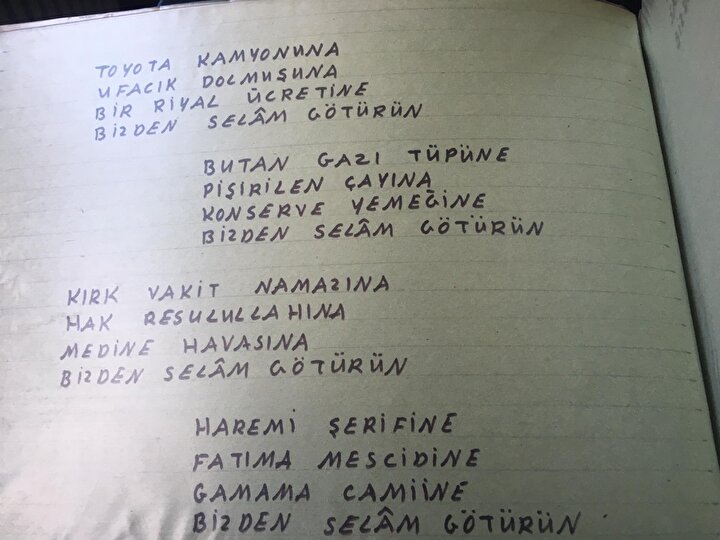 TOYOTA KAMYONUNA
UFACIK DOLMUŞUNA
BİR RİYAL ÜCRETİNE
BİZDEN SELÂM GÖTÜRÜN
BUTAN GAZI TÜPÜNE
PİŞİRİLEN ÇAYINA
KONSERVE YEMEĞİNE
BİZDEN SELÂM GÖTÜRÜN
KIRK VAKİT NAMAZINA
HAK RESULULLAHINA
MEDİNE HAVASINA
BİZDEN SELÂM GÖTÜRÜN
HAREMİ ŞERİFİNE
FATIMA MESCİDİNE
GAMAMA CAMİİNE
BİZDEN SELÂM GÖTÜRÜN